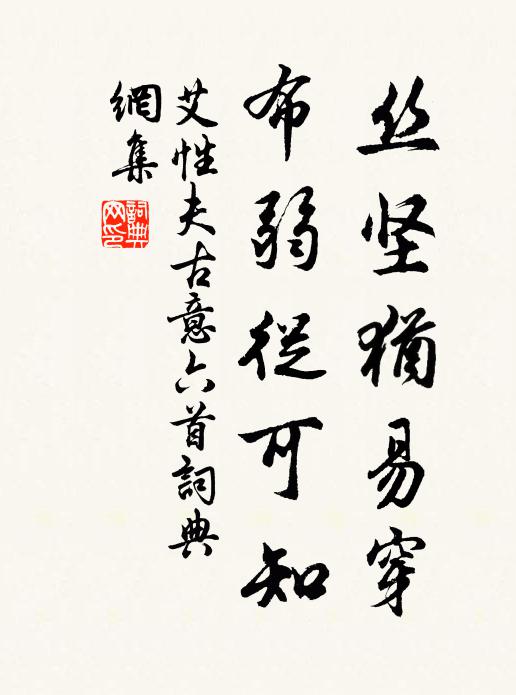 丝坚犹易穿
布弱從可知
艾性夫古意六首詞典
網集
詞典网印